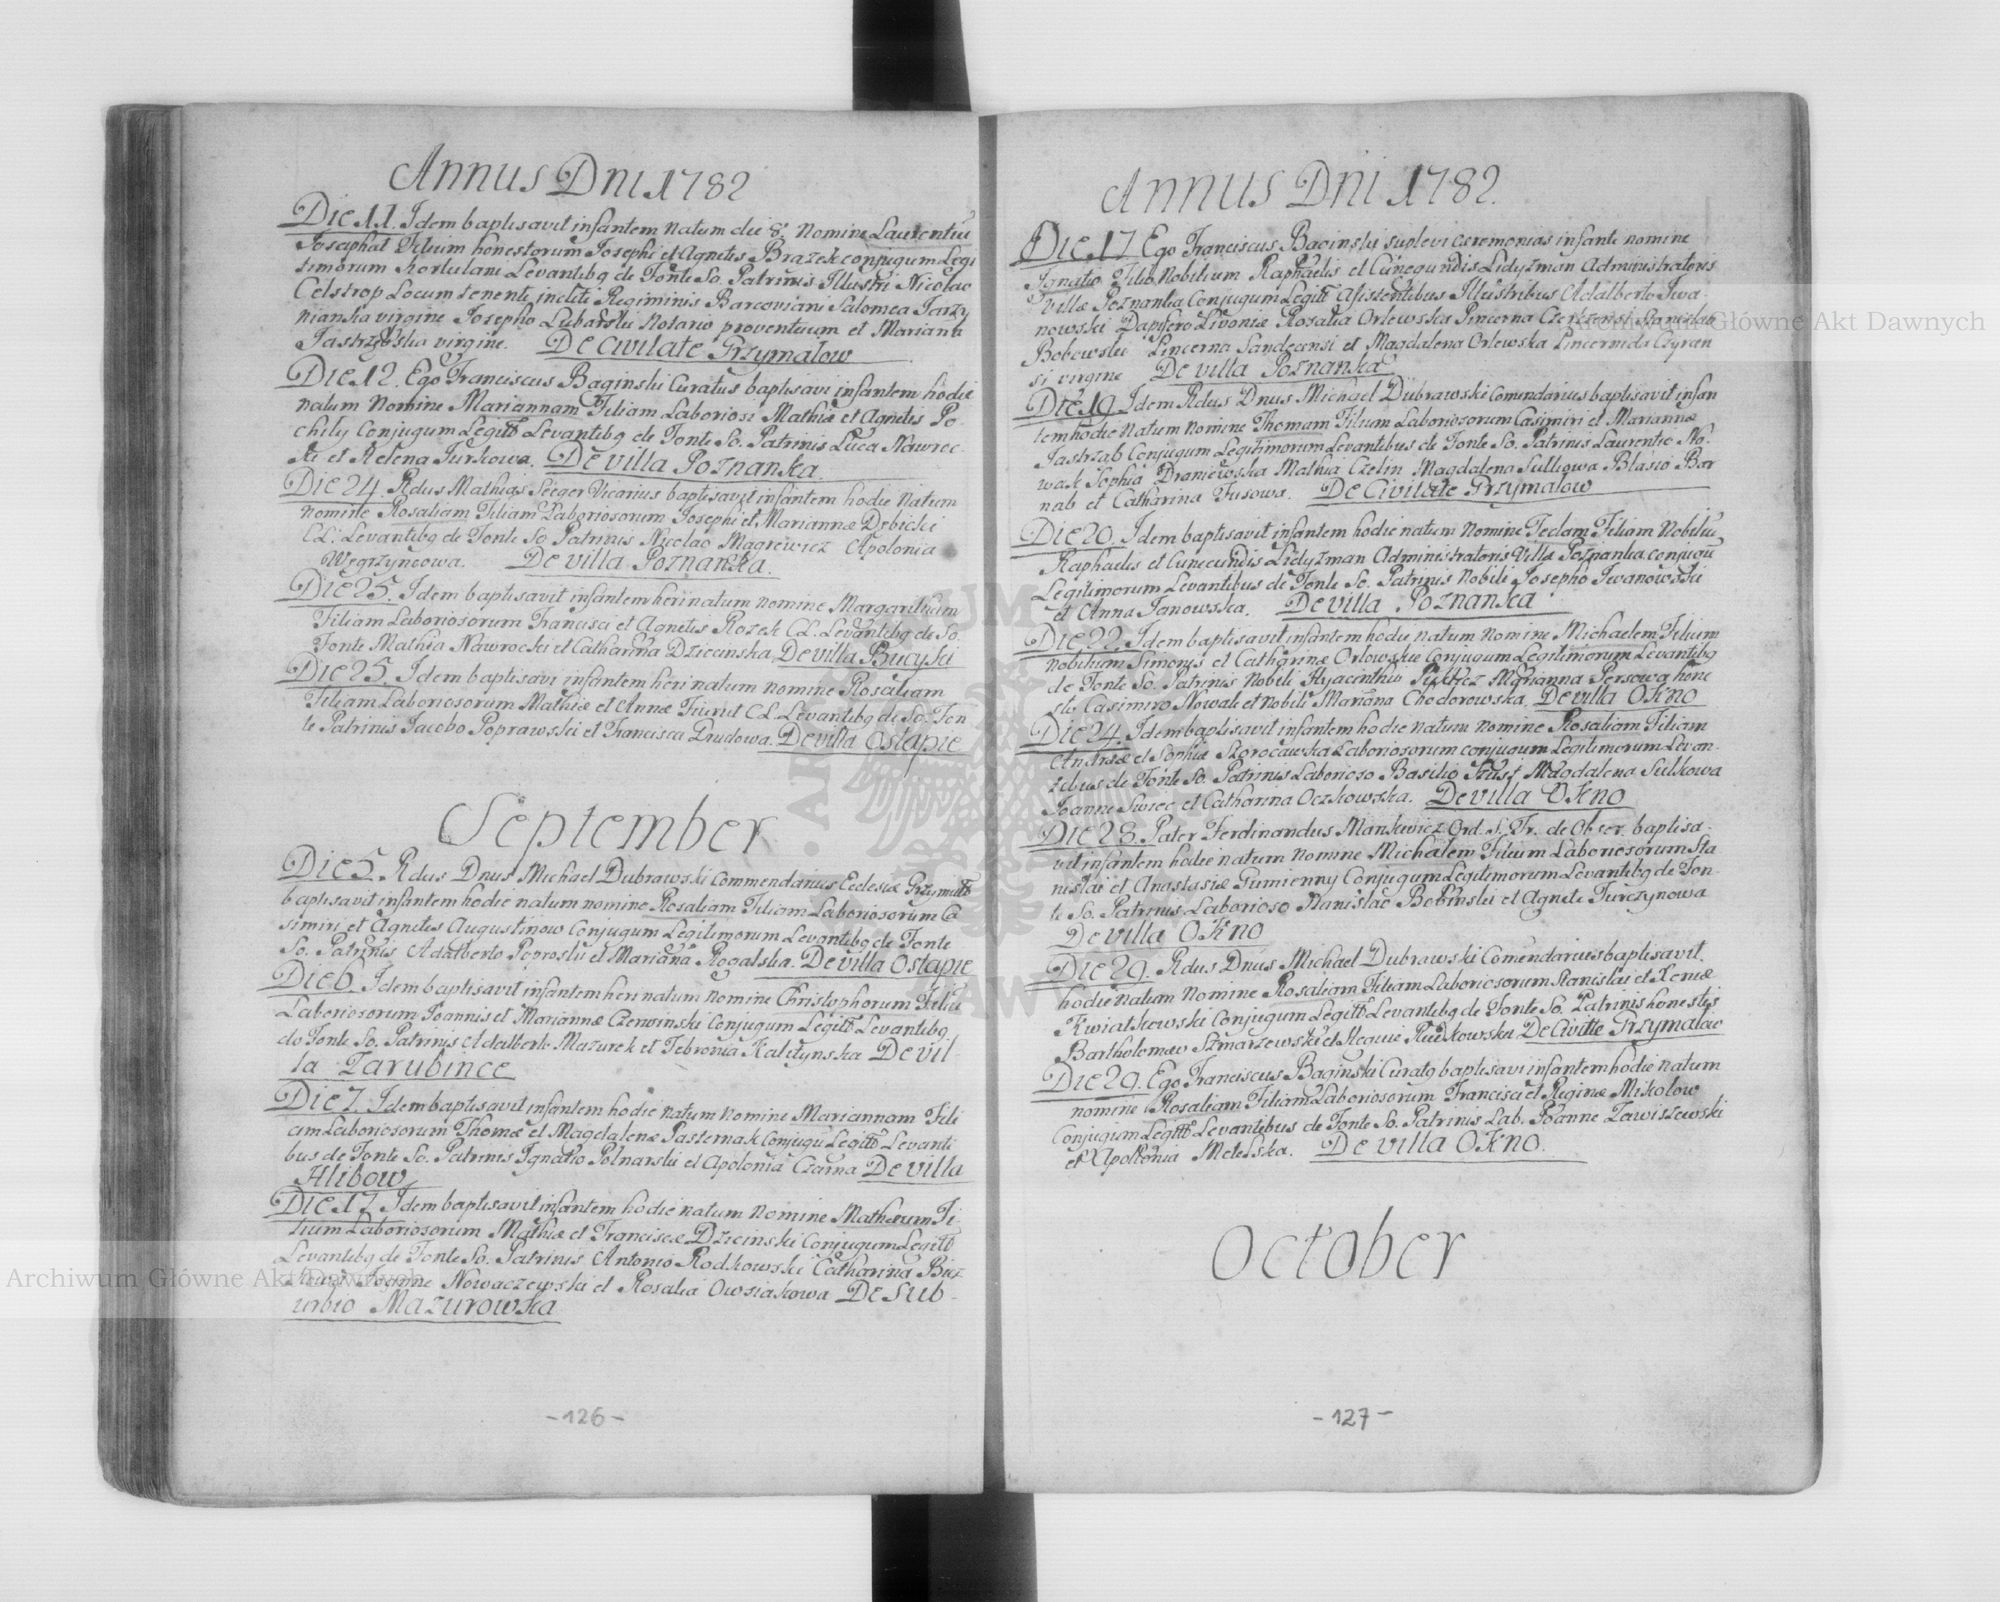 Annus Dni 1782
Die 11. Idem baptisavit infantem natum die 8. nomine Laurentiu
Josephat Filium honestorum Josephi et Agnetis Brazek conjugum Legi
timorum Levantibg de Fonte So. Patrinis Illustri Nicolao
Celstrop Locum tenente incliti Regiminis Barcoviani Salomea Jarzy
nianska virgine Josepho Lubarski Notario proventuum et Marianna
Jastrzębska virgine. De Civitate Grzymalow
Die 12. Ego Franciscus Baginski Curatus baptisavi infantem hodie
natum nomine Mariannam Filiam Laboriosi Mathiæ et Agnetis Po-
chily Conjugum Legitt Levantibg de Fonte So. Patrinis Luca Nawroc
ki et Helena Turkowa. De villa Poznanka.
Die 24. Rdus Mathias Seeger Vicarius baptisavit infantem hodie natum
nomine Rosaliam Filiam Laboriosorum Josephi et Mariannæ Drbicki
C.L. Levantibg de Fonte So Patrinis Nicolao Magrewicz Apolonia
Węgrzyncowa. De villa Poznanka.
Die 25. Idem baptisavit infantem heri natum nomine Margaritham
Filiam Laboriosorum Francisci et Agnetis Rozek C.L. Levantibg de So.
Fonte Mathia Nawrocki et Catharina Dziecinska De villa Bucyki
Die 25. Idem baptisavi infantem heri natum nomine Rosaliam
Filiam Laboriosorum Mathiæ et Annæ Fiurut C.L. Levantibg de So. Fon
te Patrinis Jacobo Poprawski et Francisca Dudowa. De villa Ostapie
September
Die 5. Rdus Dnus Michael Dubrawski Commendarius Eclesiæ Grzymalo
baptisavit infantem hodie natum nomine Rosaliam Filiam Laboriosorum Ca
simiri et Agnetis Augustinow Conjugum Legitimorum Levantibg de Fonte
So. Patrinis Adalberto Poproski et Marianna Rogalska. De villa Ostapie
Die 6. Idem baptisavit infantem heri natum nomine Christophorum Filiu
Laboriosorum Joannis et Mariannæ Czerwinski Conjugum Legitt Levantibg
de Fonte So. Patrinis Adalberto Mazurek et Febronia Kalitynska De vil-
la Zarubince
Die 7. Idem baptisavit infantem hodie natum nomine Mariannam Fili
am Laboriosorum Thomæ et Magdalenæ Pasternak Conjugu Legitt Levanti
bus de Fonte So. Patrinis Ignatio Polnarski et Apolonia Czarna De villa
Hlibow
Die 17. Idem baptisavit infantem hodie natum nomine Matheum Fi-
lium Laboriosorum Mathiæ et Franciscæ Dziecinski Conjugum Legitt
Levantibg de Fonte So. Patrinis Antonio Rodkowski Catharina
Joanne Nowaczewski et Rosalia Owsiakowa De Sub-
urbio Mazurowka
-126-
Annus Dni 1782.
Die 17 Ego Franciscus Baginski suplevi ceremonias infanti nomine
Ignatio Filio Nobilium Raphaelis et Cunegundis Lidyzman Administratoris
villæ Poznanka Conjugum Legitt Assistentibus Illustribus Adalberto Iwa-
nowski Dapifero Livoniæ Rosalia Orlewska Pincerna Czerkzensi Stanislao
Bobowski Pincerna Sandecensi et Magdalena Orlewska Pincernida Czyrcen
si virgine De villa Poznanka
Die 19 Idem Rdus Dnus Michael Dubrawski Comendarius baptisavit infan
tem hodie natum nomine Thomam Filium Laboriosorum Casimiri et Mariannæ
Jastrząb Conjugum Legitimorum Levantibus de Fonte So. Patrinis Laurentio No-
wak Sophia Draniewska Mathia Czelin Magdalena Sulkowa Blasio Bor
nab et Catharina Fusowa. De Civitate Grzymalow
Die 20. Idem baptisavit infantem hodie natum nomine Teclam Filiam Nobiliu
Raphaelis et Cunecundis Lidyzman Administratoris Villæ Poznanka conjugu
Legitimorum Levantibus de Fonte So. Patrinis Nobili Josepho Iwanowski
et Anna Janowska. De villa Poznanka
Die 22. Idem baptisavit infantem hodie natum nomine Michaelem Filium
Nobilium Simonis et Catharinæ Orlowskie Conjugum Legitimorum Levantibg
de Fonte So. Patrinis Nobili Hyacinthio Marianna Persowa hone
sto Casimiro Nowak et Nobili Mariana Chodorowska. De villa Okno
Die 24. Idem baptisavit infantem hodie natum nomine Rosaliam Filiam
Andreæ et Sophiæ Skorocawska Laboriosorum conjugum Legitimorum Levan-
tibus de Fonte So. Patrinis Laborioso Basilio Trusz Magdalena Sulkowa
Joanne Swiec et Catharina Oczkowska. De villa Okno
Die 28. Pater Ferdinandus Mankiewicz Ord. S. Fr. de Obser. baptisa-
vit infantem hodie natum nomine Michalem Filium Laboriosorum Sta
nislai et Anastasiæ Gumienny Conjugum Legitimorum Levantibg de Fon-
te So. Patrinis Laborioso Stanislao Bobinski et Agnete Turczynowa
De villa Okno
Die 29. Rdus Dnus Michael Dubrawski Comendarius baptisavit
hodie natum nomine Rosaliam Filiam Laboriosorum Stanislai et Xeniæ
Kwiatkowski Conjugum Legitt Levantibg de Fonte So. Patrinis honestis
Bartholomæo Szmarzewski et Rudkowska De Civitte Grzymalow
Die 29. Ego Franciscus Baginski Curatg baptisavi infantem hodie natum
nomine Rosaliam Filiam Laboriosorum Francisci et Reginæ Mikolow
Conjugum Legitt Levantibus de Fonte So. Patrinis Lab. Joanne Zawiszewski
et Apollonia Melelska. De villa Okno.
October
-127-
Archiwum Główne Akt Dawnych
Archiwum Główne Akt Dawnych